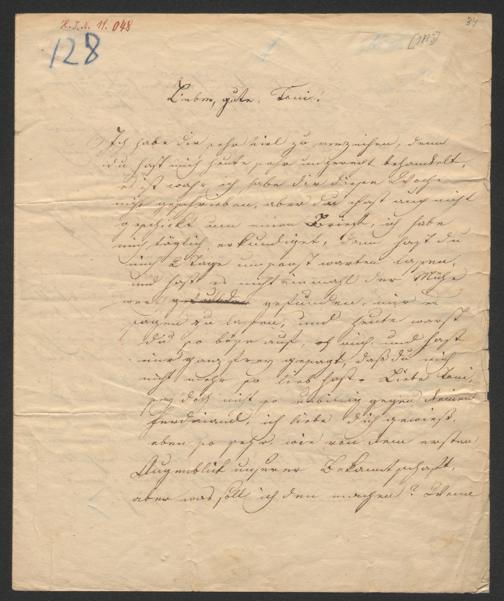 H.I.N. 11.048
84
128
Liebe, gute Toni!
Ich habe dir sehr viel zu verzeihen, denn
du hast mich heute sehr ungerecht behandelt,
es ist wahr ich habe dir diese Woche
nicht geschrieben, aber du hast auch nicht
geschickt um einen Brief, ich habe
mich täglich erkundiget, denn hast du
mich 2 Tage umsonst warten lassen,
und hast es nicht einmahl der Mühe
werth gefunden, mir es
sagen zu lassen, und heute warst
du so böse auf mich und hast
mir ganz frey gesagt, daß du mich
nicht mehr so lieb hast. Liebe Toni,
sey doch nicht so unbillig gegen deinen
Ferdinand, ich liebe dich gewiß
eben so sehr, wie von dem ersten
Augenblick unserer Bekanntschaft,
aber was soll ich den machen? Wenn